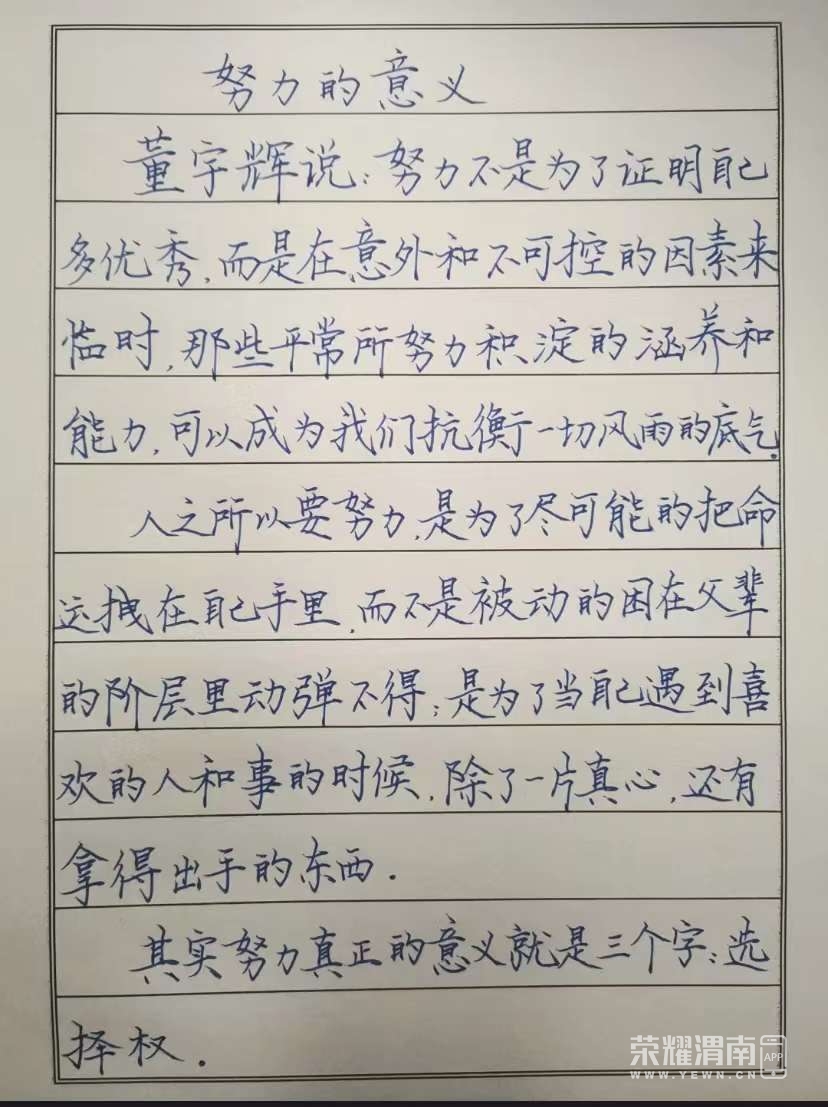 努力的意义
董宇辉说：努力不是为了证明自己
多优秀，而是在意外和不可控的因素来
临时，那些平常所努力积淀的涵养和
能力，可以成为我们抗衡一切风雨的底气．
人之所以要努力，是为了尽可能的把命
运拽在自己手里，而不是被动的困在父辈
的阶层里动弹不得；是为了当自己遇到喜
欢的人和事的时候，除了一片真心，还有
拿得出手的东西．
其实努力真正的意义就是三个字：选
择权．
荣耀渭南 APP
WWW.YEWN.CN